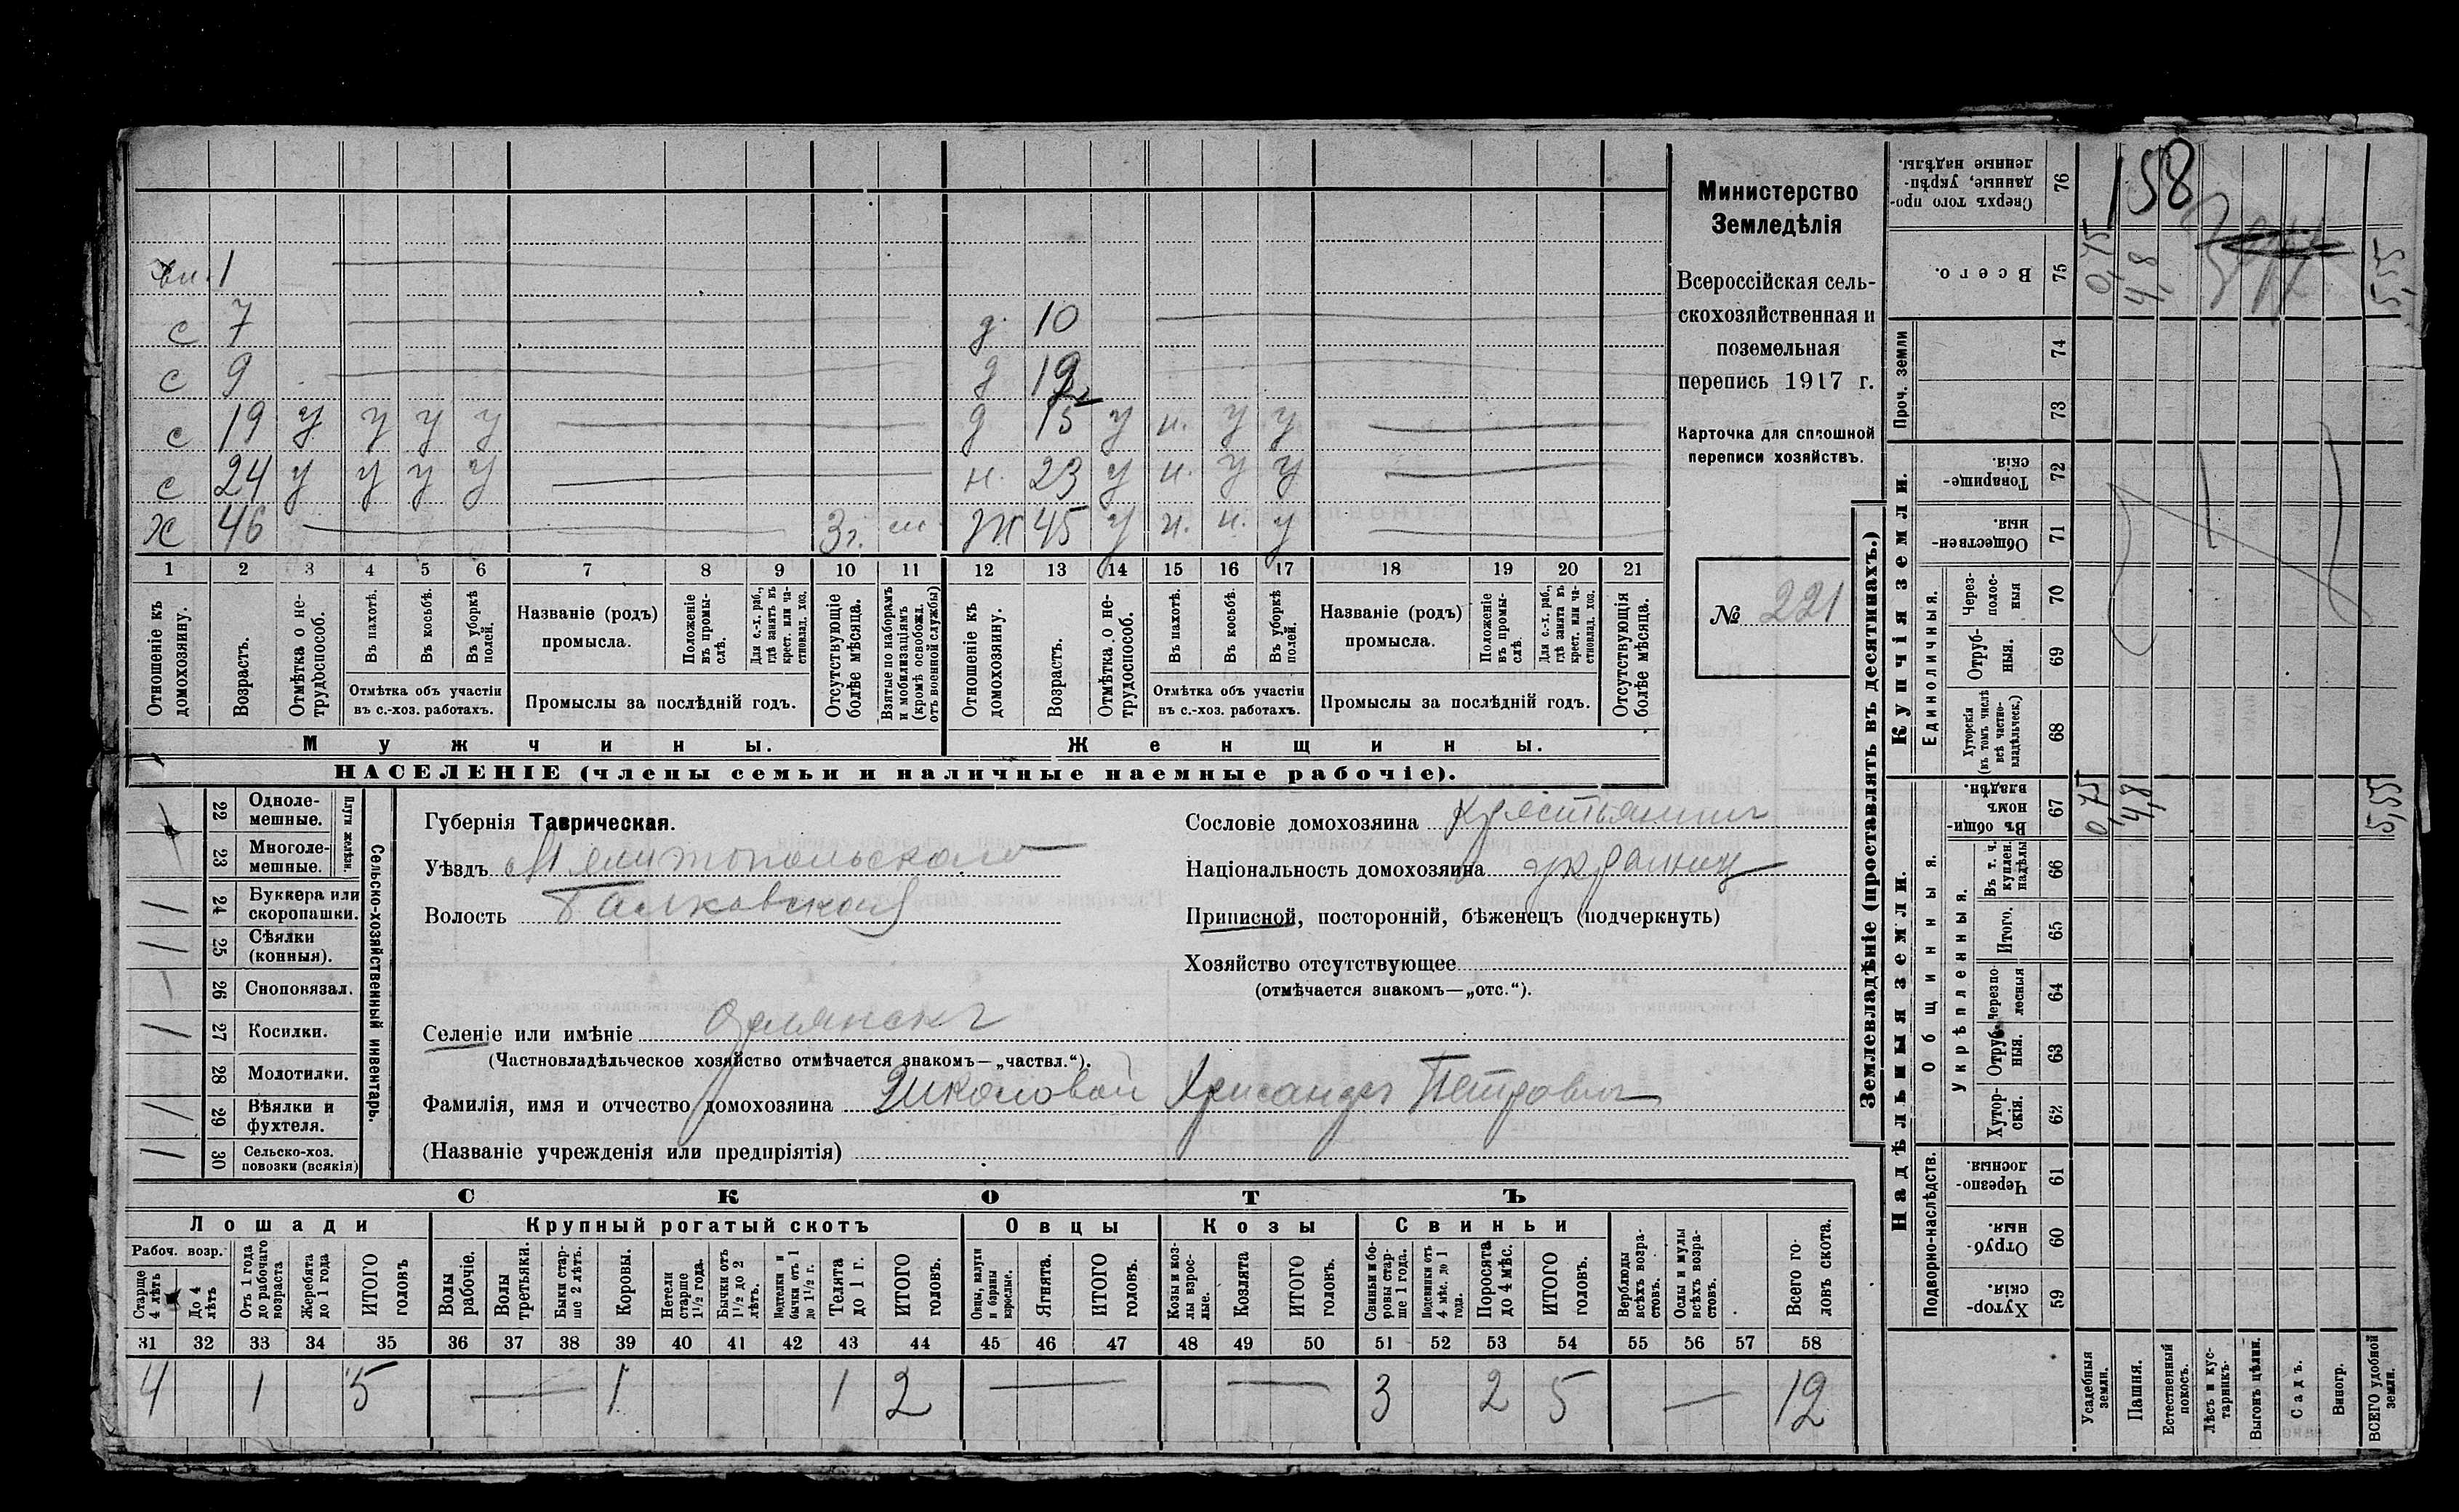 вн. 1
с 7 д. 10
с 9 д 12
с 19 у у у у д 15 у н. у у
с 24 у у у у н. 23 у н. у у
х 46 3 г. ж 45 у н. н. у
1 2 3 4 5 6 7 8 9 10 11 12 13 14 15 16 17 18 19 20 21
Отношеніе къ домохозяину.
Возрастъ.
Отмѣтка о не-трудоспособ.
Въ пахотѣ.
Въ косьбѣ.
Въ уборкѣ полей.
Отмѣтка объ участіи въ с.-хоз. работахъ.
Названіе (родъ) промысла.
Положеніе въ промы-слѣ.
Для с.-х. раб., гдѣ занятъ въ крест. или ча-стновлад. хоз.
Промыслы за послѣдній годъ.
Отсутствующіе болѣе мѣсяца.
Взятые по наборамъ и мобилизаціямъ (кромѣ освобожд. отъ военной службы)
Отношеніе къ домохозяину.
Возрастъ.
Отмѣтка о не-трудоспособ.
Въ пахотѣ.
Въ косьбѣ.
Въ уборкѣ полей.
Отмѣтка объ участіи въ с.-хоз. работахъ.
Названіе (родъ) промысла.
Положеніе въ промы-слѣ.
Для с.-х. раб., гдѣ занятъ въ крест. или ча-стновлад. хоз.
Промыслы за послѣдній годъ.
Отсутствующія болѣе мѣсяца.
Мужчины. Женщины.
НАСЕЛЕНІЕ (члены семьи и наличные наемные рабочіе).
Министерство
Земледѣлія
Всероссійская сель-
скохозяйственная и
поземельная
перепись 1917 г.
Карточка для сплошной
переписи хозяйствъ.
№ 221
Сельско-хозяйственный инвентарь.
Плуги желѣзн.
22 Одноле-мешные.
23 Многоле-мешные.
24 Буккера или скоропашки.
25 Сѣялки (конныя).
26 Сноповязал.
27 Косилки.
28 Молотилки.
29 Вѣялки и фухтеля.
30 Сельско-хоз. повозки (всякія)
Губернія Таврическая.
Уѣздъ Мелитопольскаго
Волость Балковской
Сословіе домохозяина крестьянинъ
Національность домохозяина украинец
Приписной, посторонній, бѣженецъ (подчеркнуть)
Хозяйство отсутствующее
(отмѣчается знакомъ—„отс.“).
Селеніе или имѣніе Орлянскъ
(Частновладѣльческое хозяйство отмѣчается знакомъ—„частвл.“).
Фамилія, имя и отчество домохозяина Хрисандръ Петровичъ
(Названіе учрежденія или предпріятія)
СКОТЪ
Лошади Крупный рогатый скотъ Овцы Козы Свиньи
Рабоч. возр.
Старше 4 лѣтъ
До 4 лѣтъ
Отъ 1 года до рабочаго возраста
Жеребята до 1 года
ИТОГО головъ
Волы рабочіе.
Волы третьяки.
Быки стар-ше 2 лѣтъ.
Коровы.
Нетели старше 1½ года.
Бычки отъ 1½ до 2 лѣтъ.
Подтелки и бычки отъ 1 до 1½ г.
Телята до 1 г.
ИТОГО головъ.
Овцы, валухи и бараны взрослые.
Ягнята.
ИТОГО головъ.
Козы и коз-лы взрос-лые.
Козлята
ИТОГО головъ.
Свиньи и бо-ровы стар-ше 1 года.
Подсвинки отъ 4 мѣс. до 1 года.
Поросята до 4 мѣс.
ИТОГО головъ.
Верблюды всѣхъ возра-стовъ.
Ослы и мулы всѣхъ возра-стовъ.
Всего го-ловъ скота.
31 32 33 34 35 36 37 38 39 40 41 42 43 44 45 46 47 48 49 50 51 52 53 54 55 56 57 58
4 1 5 — 1 1 2 — — 3 2 5 — 12
Землевладѣніе (проставлять въ десятинахъ.)
Надѣльныя земли. Купчія земли.
Подворно-наслѣдств.
Общинныя.
Укрѣпленныя.
Единоличныя.
Проч. земли
Хутор-скія 59
Отруб-ныя 60
Черезпо-лосныя. 61
Хутор-скія. 62
Отруб-ныя. 63
Черезпо-лосныя 64
Итого. 65
Въ т. ч. куплен. надѣлы 66
Въ общи-номъ владѣн. 67
Хуторскія (въ томъ числѣ всѣ частно-владѣльческ.) 68
Отруб-ныя. 69
Через-полос-ныя 70
Обществен-ныя. 71
Товарище-скія. 72
73
74
Всего. 75
Сверхъ того про-данные, укрѣп-ленные надѣлы. 76
158
0,75 4,8 5,55
0,75 4,8 5,55
Усадебныя земли.
Пашня.
Естественный покосъ.
Лѣсъ и кус-тарникъ.
Выгонъ цѣлин.
Садъ.
Виногр.
ВСЕГО удобной земли.